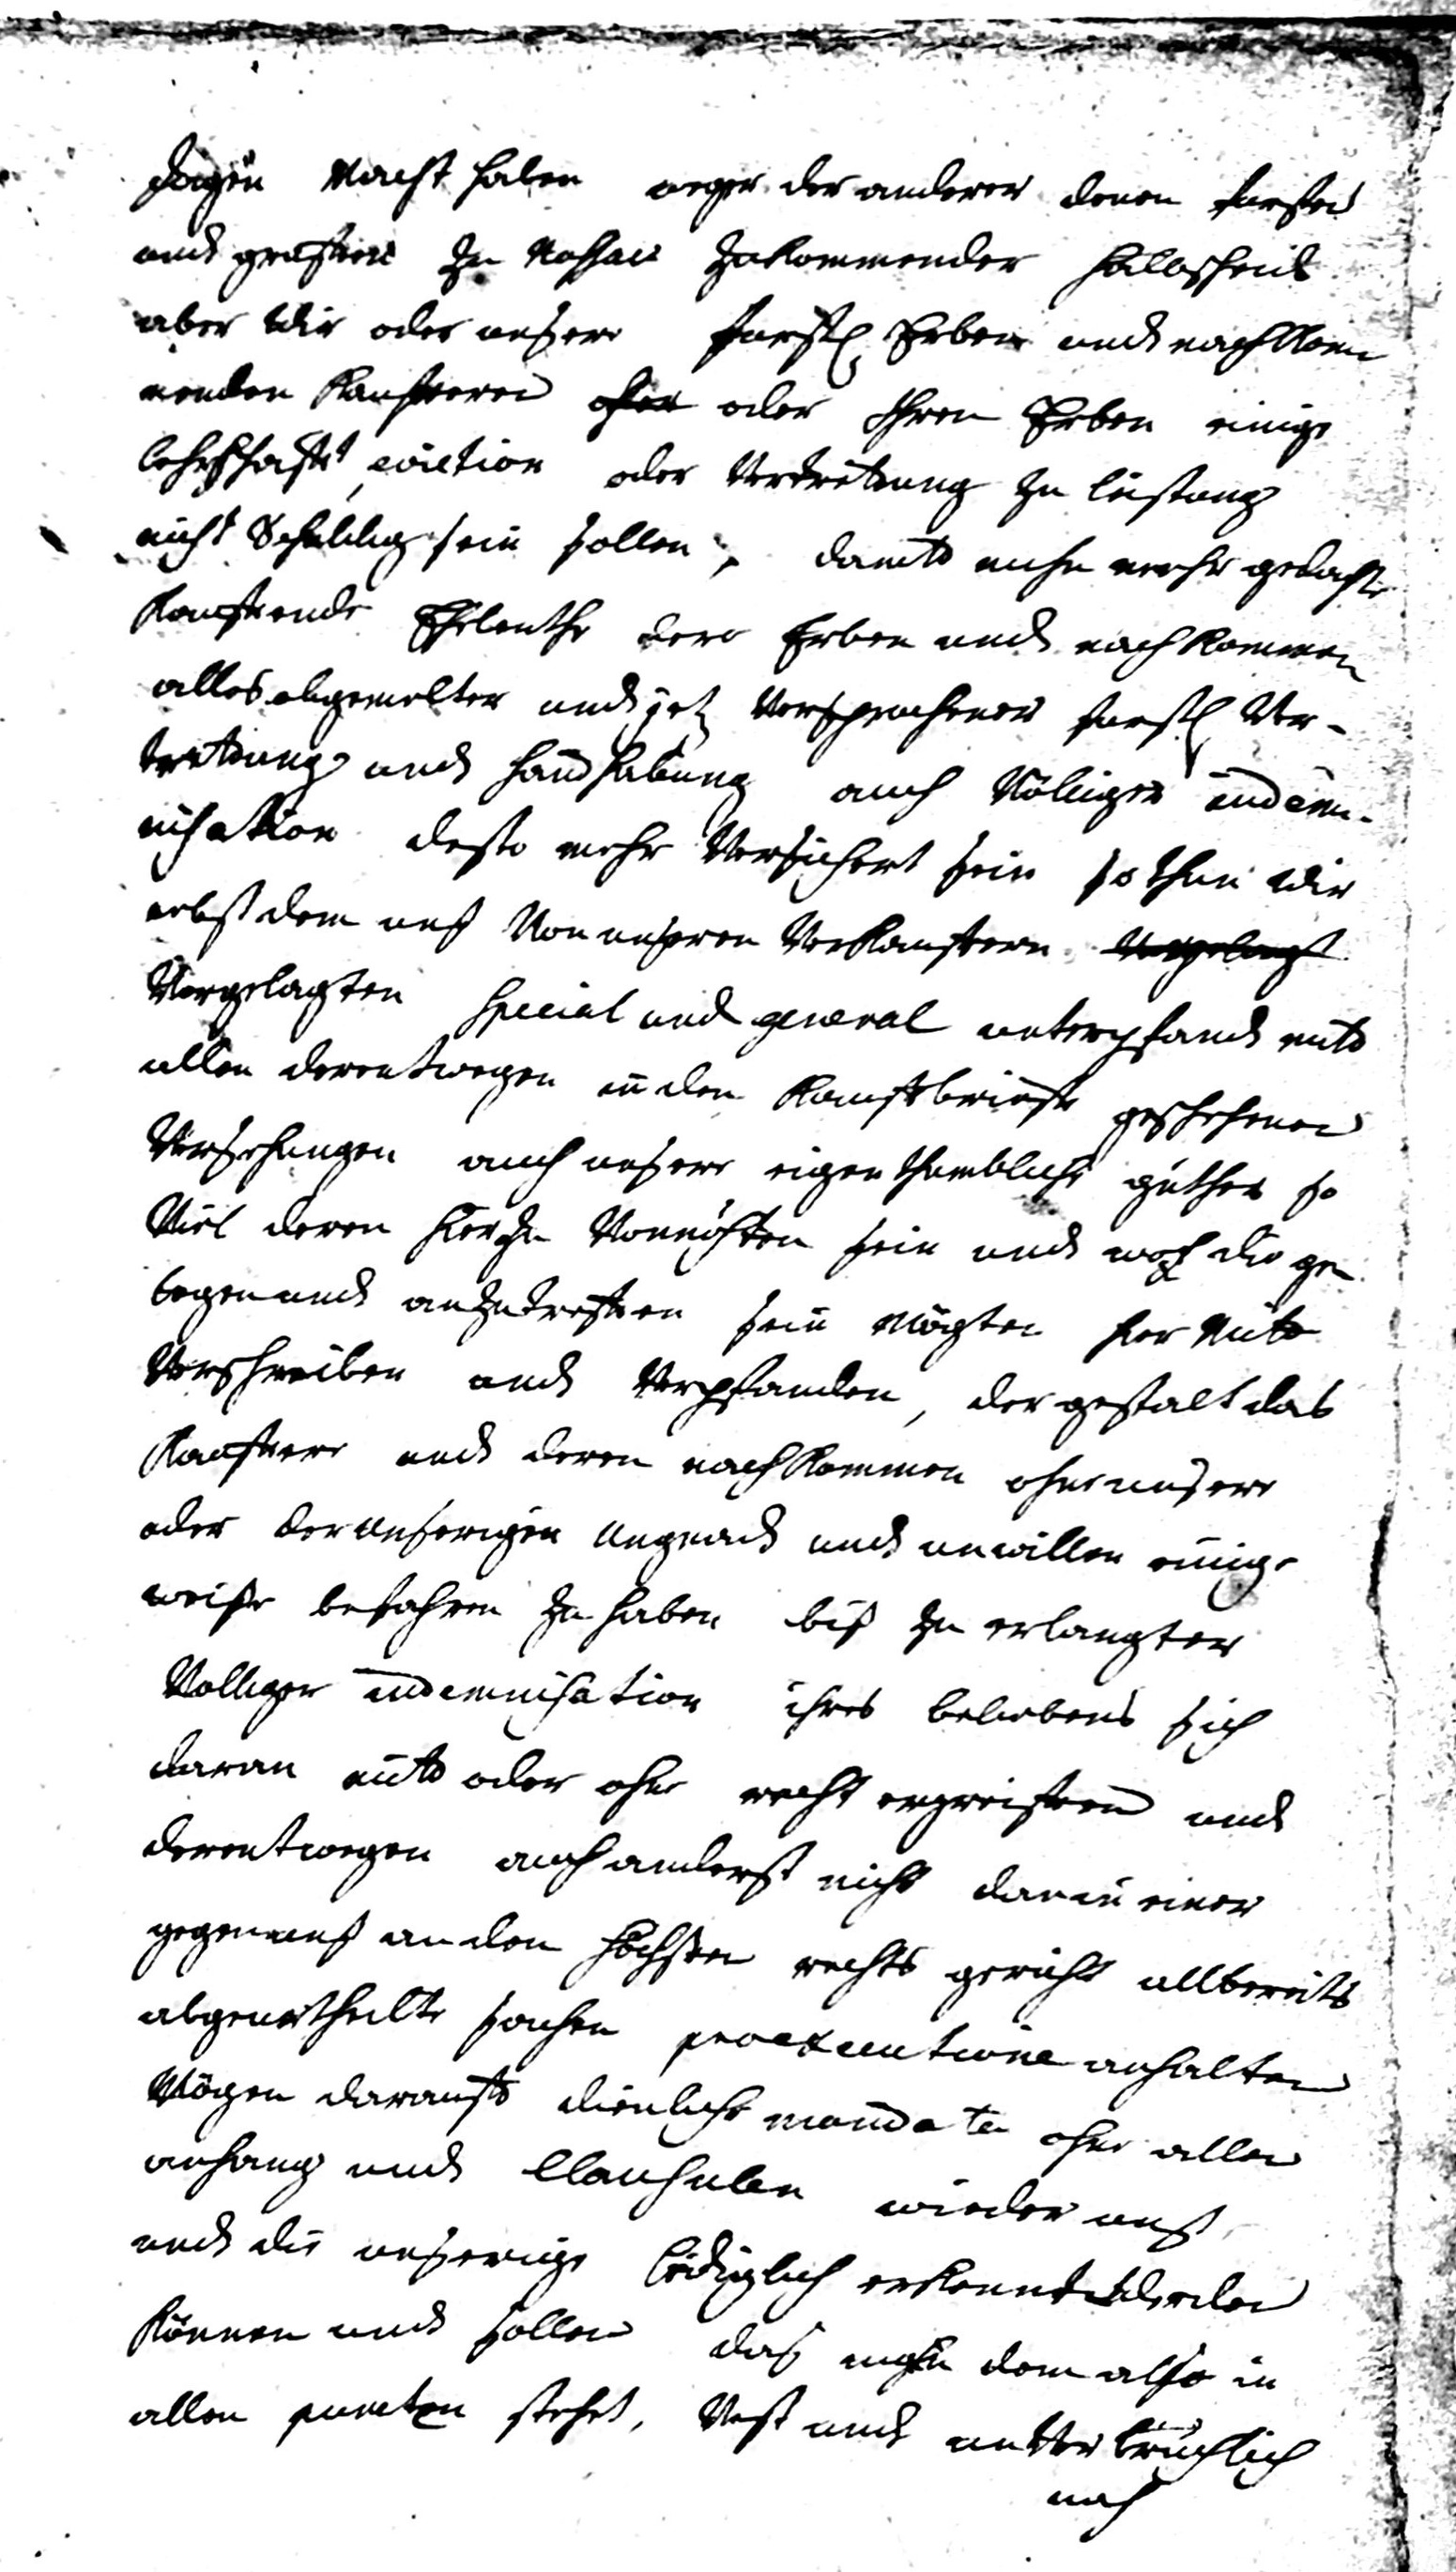 Macht haben wegen der anderer denen fursten
und graffen zu Nassau zukommender halbscheid
aber Wir oder unsere fürstl. Erben und nachkom
menden Kaufferen oder ihren Erben einige
wehrschafft, eviction oder Vertrettung zu leistung
nicht Schuldig sein sollen, damit nuhn mehr gedachte
Kauffende Eheleuthe dero Erben und nachkommen
alles obgemelter und jetz Versprochener fürstl Ver-
trettung und handhabung auch Völliger indem-
nisation desto mehr Versichert sein so thun Wir
nebst dem uns Von unseren Verkauffern
Vorgelagten special und general unterpfand mit
allen derentwegen in den Kauffbrieffe geschehenen
Versehungen auch unsere eigenthumbliche güther so
Viel deren hierzu Vonnöthen sein und woh die ge
legen und anzutreffen sein Mögten hier Mitt
Verschreiben und Verpfanden, der gestalt das
Kauffere und deren nachkommen ohne unsere
oder der unserigen Ungnad und unwillen einige
weiße befahren zu haben biß zu erlangter
Volliger indemnisation ihres beliebens sich
daran mit oder ohne recht ergreiffen und
derentwegen auch anderst nicht dan in einer
gegen uns an den höchsten rechts gericht allbereits
abgeurtheilte sachen pro executione anhalten
Mögen darauff dienliche mandaten ohne allen
anhang und Clausulen wieder uns
und die unserige lediglich erkennt Werden
können und sollen das nuhn dem also in
allen puncten stehet, Vest und unVerbrüchlich
nach